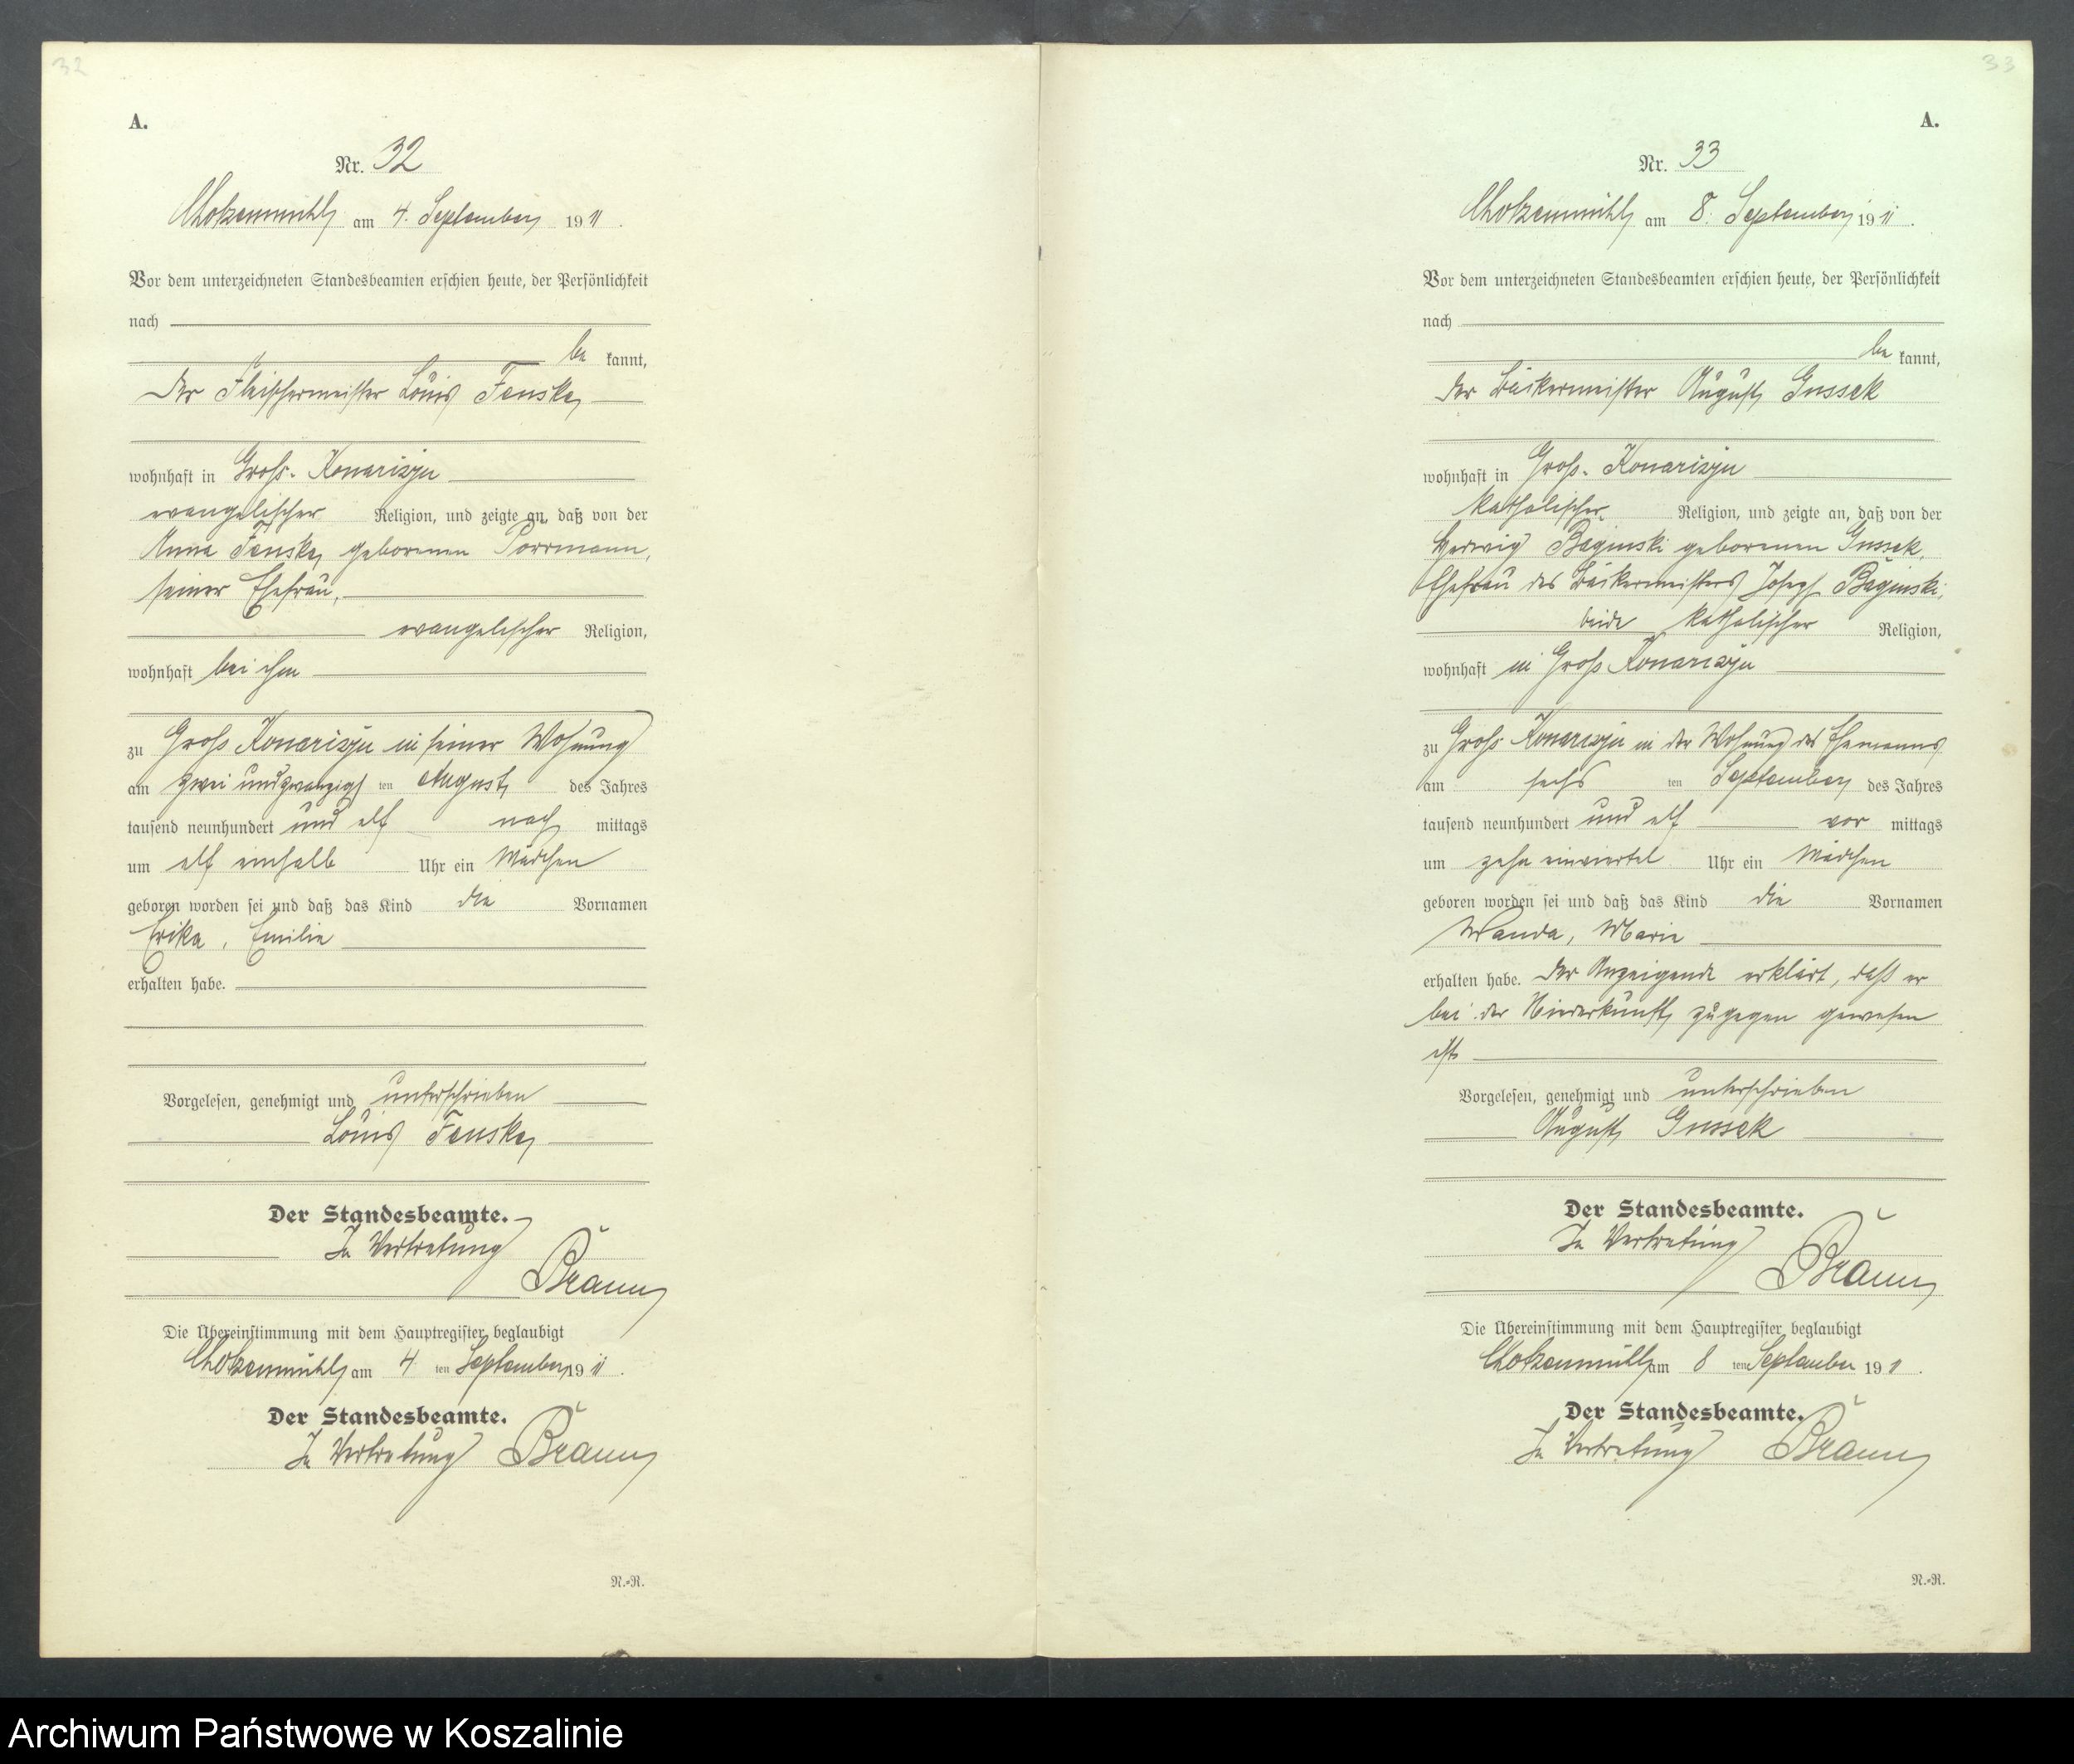 32
A.
Nr. 32
Chotzenmühl am 4. September 1911.
Vor dem unterzeichneten Standesbeamten erschien heute, der Persönlichkeit
nach
be kannt,
der Fleischermeister Louis Fenske,
wohnhaft in Groß-Konarczyn
evangelischer Religion, und zeigte an, daß von der
Anna Fenske, geborenen Porrmann,
seiner Ehefrau,
evangelischer Religion,
wohnhaft bei ihm
zu Groß Konarczyn in seiner Wohnung
am zwei und zwanzigsten August des Jahres
tausend neunhundert und elf nach mittags
um elf einhalb Uhr ein Mädchen
geboren worden sei und daß das Kind die Vornamen
Erika, Emilie
erhalten habe.
Vorgelesen, genehmigt und unterschrieben
Louis Fenske
Der Standesbeamte.
In Vertretung
Braun
Die Übereinstimmung mit dem Hauptregister beglaubigt
Chotzenmühl am 4 ten September 1911.
Der Standesbeamte.
In Vertretung Braun
N.=R.
33
A.
Nr. 33
Chotzenmühl am 8. September 1911.
Vor dem unterzeichneten Standesbeamten erschien heute, der Persönlichkeit
nach
be kannt,
der Bäckermeister August Gussek
wohnhaft in Groß-Konarczyn
katholischer Religion, und zeigte an, daß von der
Hedwig Baginski geborenen Gussek,
Ehefrau des Bäckermeisters Joseph Baginski,
beide katholischer Religion,
wohnhaft in Groß Konarczyn
zu Groß Konarczyn in der Wohnung des Ehemanns
am sechs ten September des Jahres
tausend neunhundert und elf vor mittags
um zehn einviertel Uhr ein Mädchen
geboren worden sei und daß das Kind die Vornamen
Wanda, Marie
erhalten habe. Der Anzeigende erklärt, daß er
bei der Niederkunft zugegen gewesen
ist
Vorgelesen, genehmigt und unterschrieben
August Gussek
Der Standesbeamte.
In Vertretung
Braun
Die Übereinstimmung mit dem Hauptregister beglaubigt
Chotzenmühl am 8 ten September 1911.
Der Standesbeamte.
In Vertretung Braun
N.=R.
Archiwum Państwowe w Koszalinie